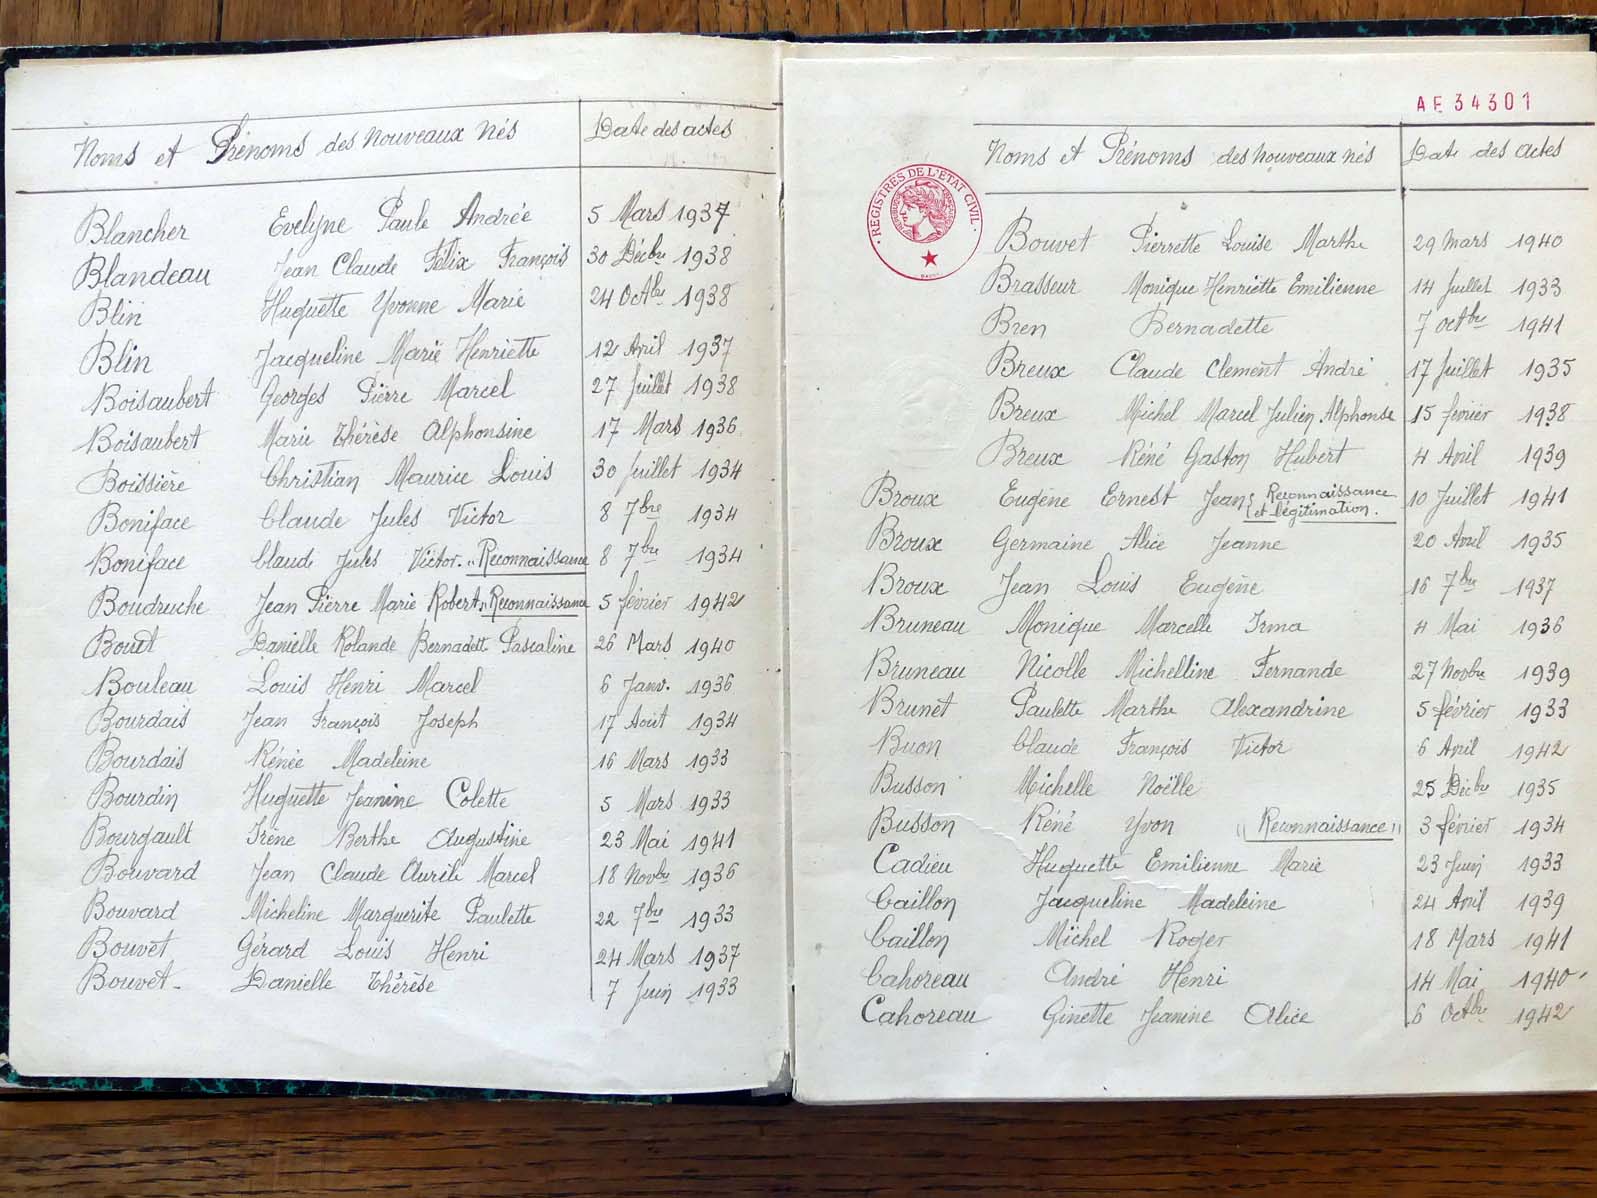 Noms et Prénoms des nouveaux nés Date des actes
Blancher Evelyne Paule Andrée 5 Mars 1937
Blandeau Jean Claude Félix François 30 Décbre 1938
Blin Huguette Yvonne Marie 24 Octbre 1938
Blin Jacqueline Marie Henriette 12 Avril 1937
Boisaubert Georges Pierre Marcel 27 Juillet 1938
Boisaubert Marie Thérèse Alphonsine 17 Mars 1936
Boissière Christian Maurice Louis 30 Juillet 1934
Boniface Claude Jules Victor 8 7bre 1934
Boniface Claude Jules Victor. "Reconnaissance 8 7bre 1934
Boudruche Jean Pierre Marie Robert "Reconnaissance 5 février 1942
Bouet Danielle Rolande Bernadett Pascaline 26 Mars 1940
Bouleau Louis Henri Marcel 6 Janv. 1936
Bourdais Jean François Joseph 17 Août 1934
Bourdais Rénée Madeleine 16 Mars 1933
Bourdin Huguette Jeanine Colette 5 Mars 1933
Bourgault Irène Berthe Augustine 23 Mai 1941
Bouvard Jean Claude Marcel 18 Novbre 1936
Bouvard Micheline Marguerite Paulette 22 7bre 1933
Bouvet Gérard Louis Henri 24 Mars 1937
Bouvet - Danielle Thérèse 7 Juin 1933
AE 34301
REGISTRES DE L'ETAT CIVIL
Noms et Prénoms des nouveaux nés Date des actes
Bouvet Pierrette Louise Marthe 29 mars 1940
Brasseur Monique Henriette Emilienne 14 Juillet 1933
Bren Bernadette 7 octbre 1941
Breux Claude Clement André 17 Juillet 1935
Breux Michel Marcel Julien Alphonse 15 fevrier 1938
Breux Réné Gaston Hubert 4 Avril 1939
Broux Eugène Ernest Jean Reconnaissance et légitimation. 10 Juillet 1941
Broux Germaine Alice Jeanne 20 Avril 1935
Broux Jean Louis Eugène 16 7bre 1937
Bruneau Monique Marcelle Irma 4 Mai 1936
Bruneau Nicolle Michelline Fernande 27 Novbre 1939
Brunet Paulette Marthe Alexandrine 5 février 1933
Buon Claude François Victor 6 Avril 1942
Busson Michelle Noëlle 25 Décbre 1935
Busson Réné Yvon "Reconnaissance" 3 février 1934
Cadieu Huguette Emilienne Marie 23 Juin 1933
Caillon Jacqueline Madeleine 24 Avril 1939
Caillon Michel Roger 18 Mars 1941
Cahoreau André Henri 14 Mai 1940
Cahoreau Ginette Jeanine Alice 6 Octbre 1942